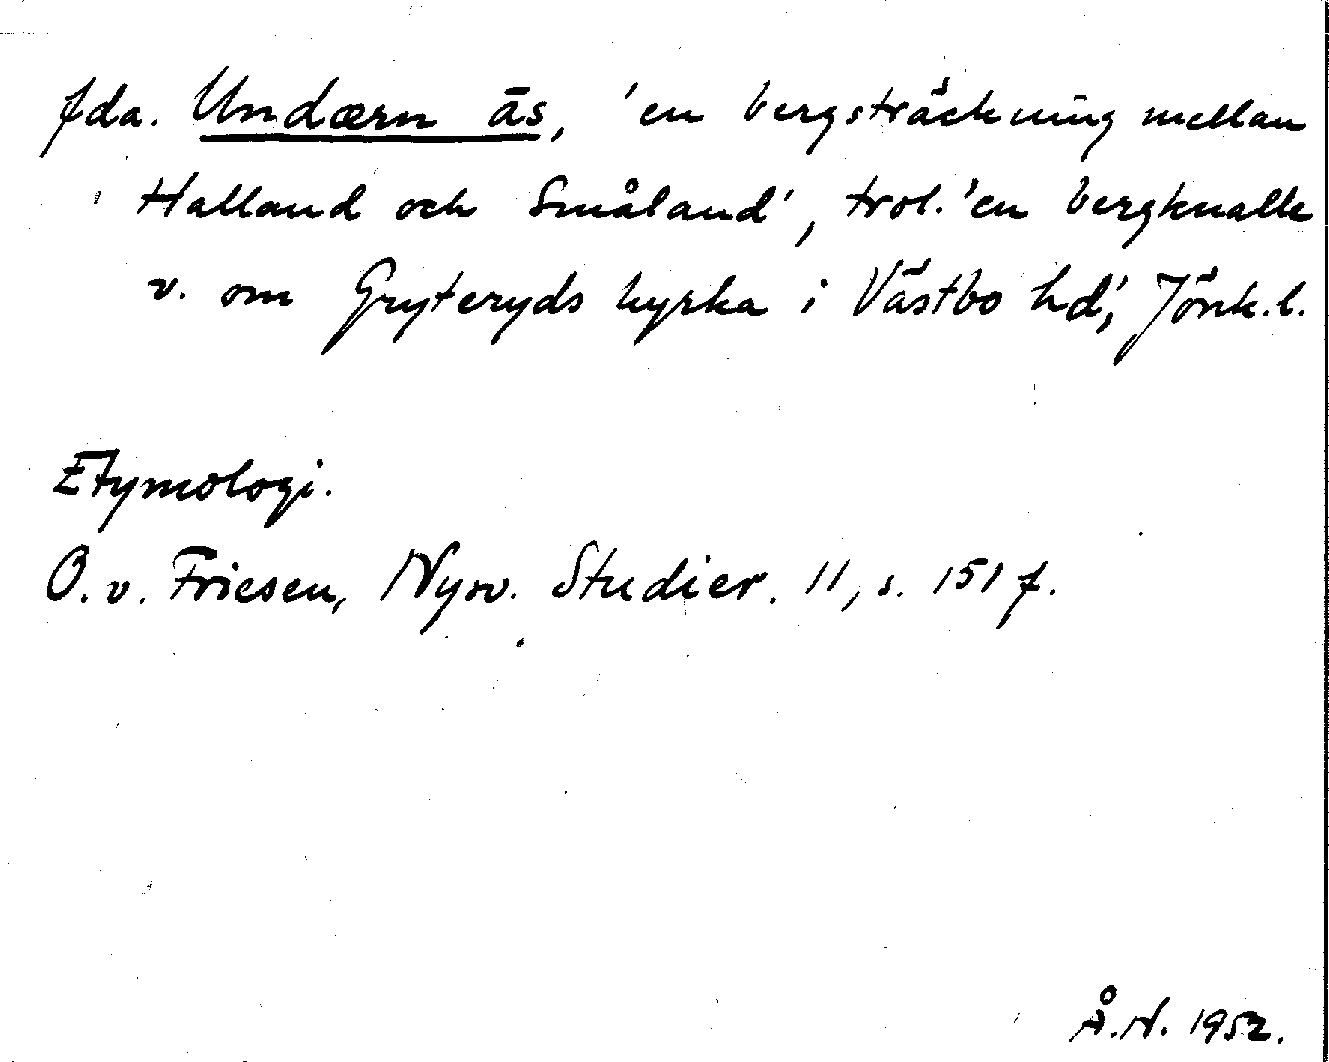 fda. Undærn ās, 'en bergsträckning mellan
Halland och Småland', trol. 'en bergknalle
v. om Gryteryds kyrka i Västbo hd', Jönk.l.
Etymologi.
O. v. Friesen, Nysv. Studier. 11, s. 151 f.
Å.N. 1952.